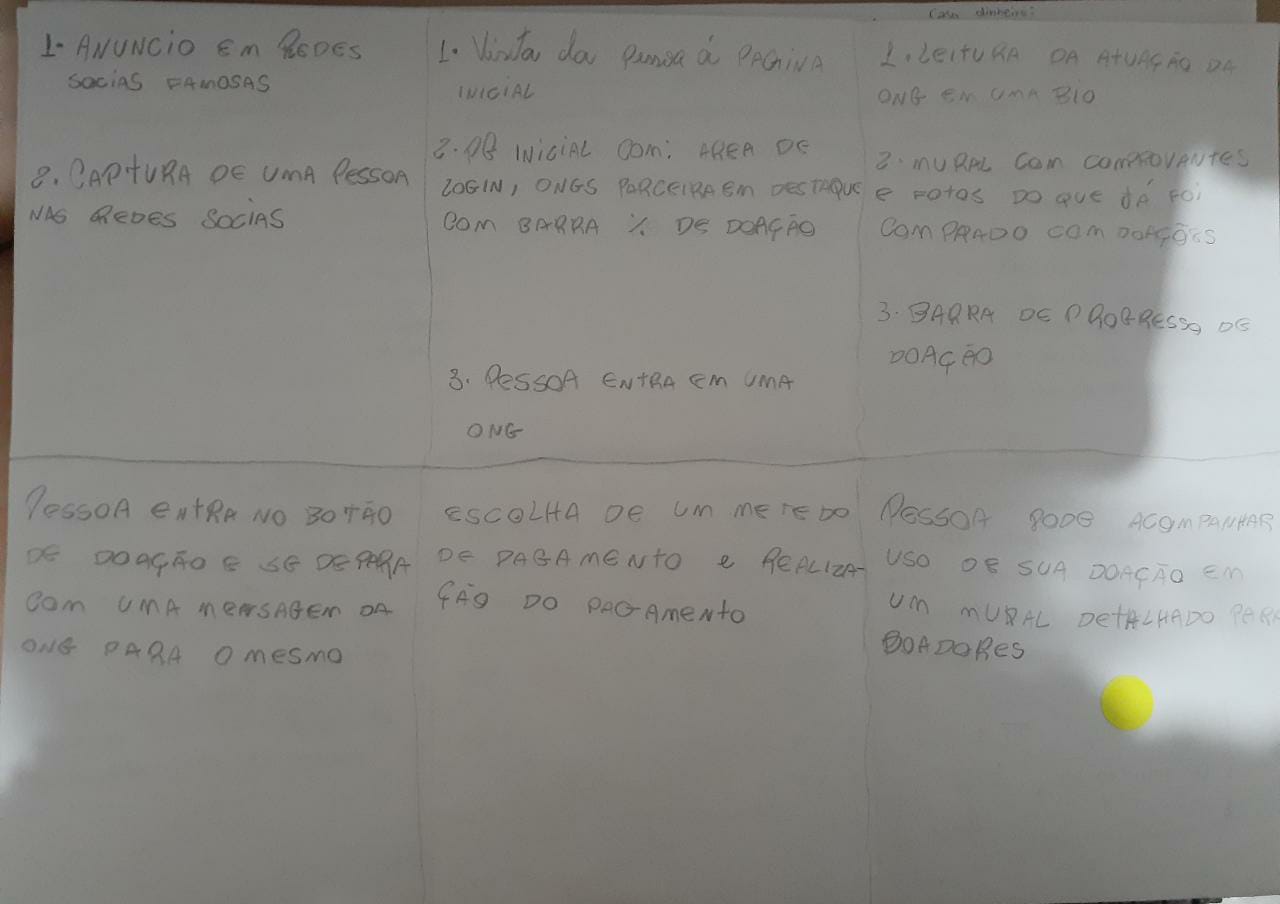 Caso dinheiro:
1. ANUNCIO EM REDES
SOCIAS FAMOSAS
2. CAPTURA DE UMA PESSOA
NAS REDES SOCIAS
1. Visita da pessoa á PAGINA
INICIAL
2. PG INICIAL COM: AREA DE
LOGIN, ONGS PARCEIRA EM DESTAQUE
COM BARRA % DE DOAÇÃO
3. PESSOA ENTRA EM UMA
ONG
1. LEITURA DA ATUAÇÃO DA
ONG EM UMA BIO
2. MURAL COM COMPROVANTES
E FOTOS DO QUE JÁ FOI
COMPRADO COM DOAÇÕES
3. BARRA DE PROGRESSO DE
DOAÇÃO
PESSOA ENTRA NO BOTÃO
DE DOAÇÃO E SE DEPARA
COM UMA MENSAGEM DA
ONG PARA O MESMO
ESCOLHA DE UM METEDO
DE PAGAMENTO e REALIZA-
ÇÃO DO PAGAMENTO
PESSOA PODE ACOMPANHAR
USO DE SUA DOAÇÃO EM
UM MURAL DETALHADO PARA
DOADORES